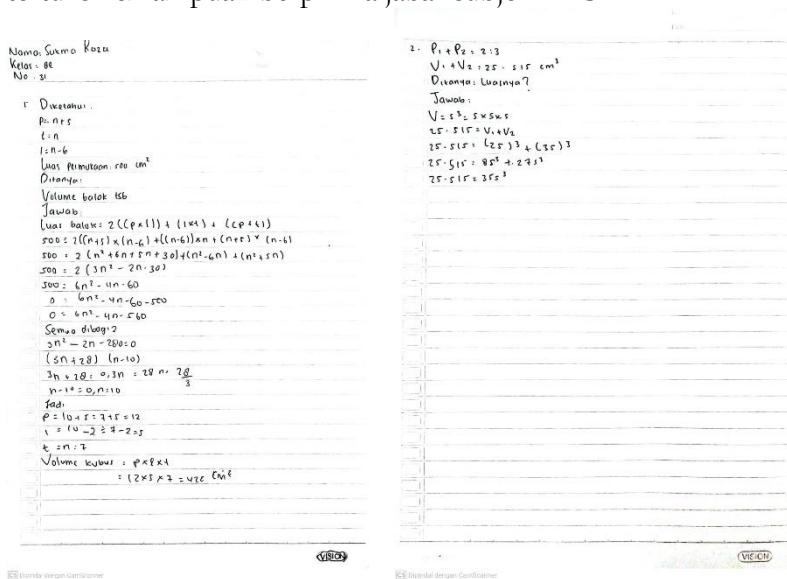 Nama: Sukma
Kelas: 8E
No. 31
1 Diketahui:
p = n+5
t = n
l = n-6
Luas permukaan: 500 cm²
Ditanya:
Volume balok tsb
Jawab:
Luas balok: 2((p×l)) + (l×t) + ((p+t))
500 = 2((n+5) × (n-6) + ((n-6))×n + (n+5) × (n-6)
500 = 2 (n² + 6n + 5n + 30) + (n² - 6n) + (n² + 5n)
500 = 2 (3n² - 2n - 30)
500 = 6n² - 4n - 60
0 = 6n² - 4n - 60 - 500
0 = 6n² - 4n - 560
Semua dibagi 2
3n² - 2n - 280 = 0
(3n + 28) (n-10)
3n + 28 = 0, 3n = 28 n = 28/3
n - 10 = 0, n = 10
Jadi
p = 10 + 5 = 7 + 5 = 12
l = 10 - 2 = 7 - 2 = 5
t = n = 7
Volume kubus = p×l×t
= 12×5×7 = 420 cm²
VISION
CS Dipindai dengan CamScanner
2. P₁ + P₂ = 2:3
V₁ + V₂ = 25.515 cm³
Ditanya: Luasnya?
Jawab:
V = s³ = 5×5×5
25.515 = V₁ + V₂
25.515 = (2s)³ + (3s)³
25.515 = 8s³ + 27s³
25.515 = 35s³
VISION
CS Dipindai dengan CamScanner